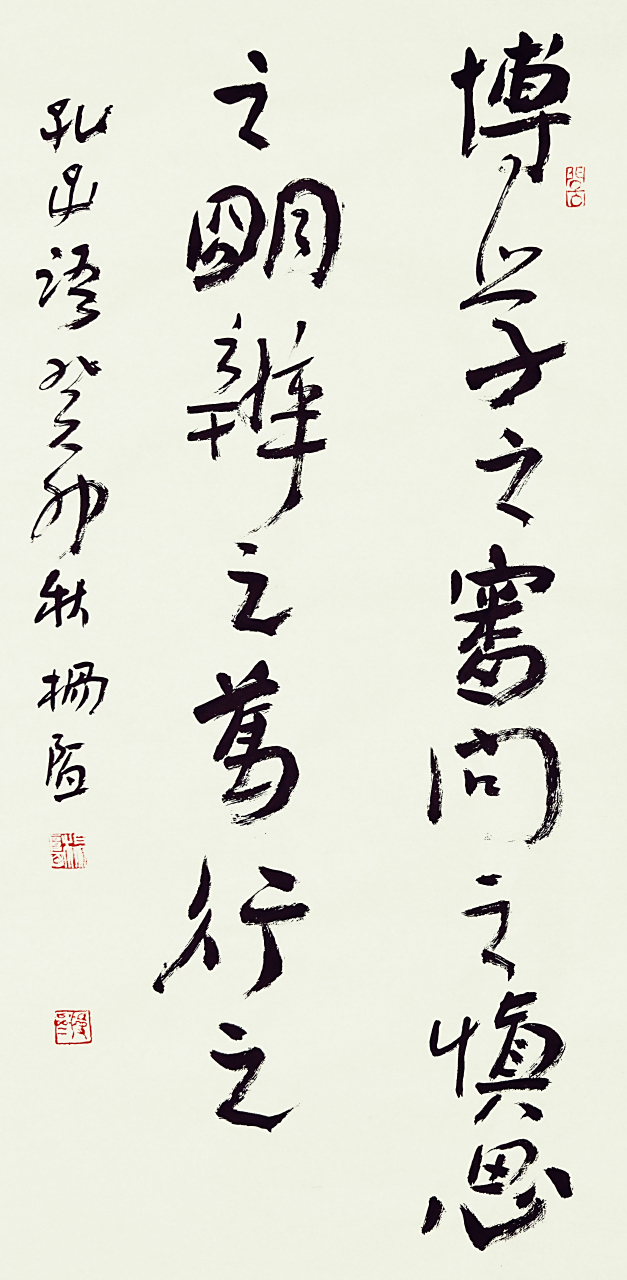 博學之審問之慎思
之朙辨之篤行之
孔語癸卯秋楊